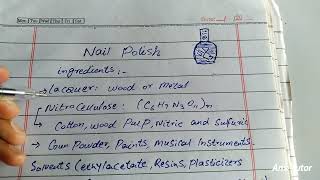 Mon Tue Wed Thu Fri Sat Date
Nail Polish
ingredients:-
→ Lacquer: Wood or Metal
Nitrocellulose: (C6H7N3O11)n
→ Cotton, Wood Pulp, Nitric and Sulfuric
→ Gun Powder, Paints, Musical Instruments
Solvents (ethylacetate, Resins, Plasticizers
Tutor